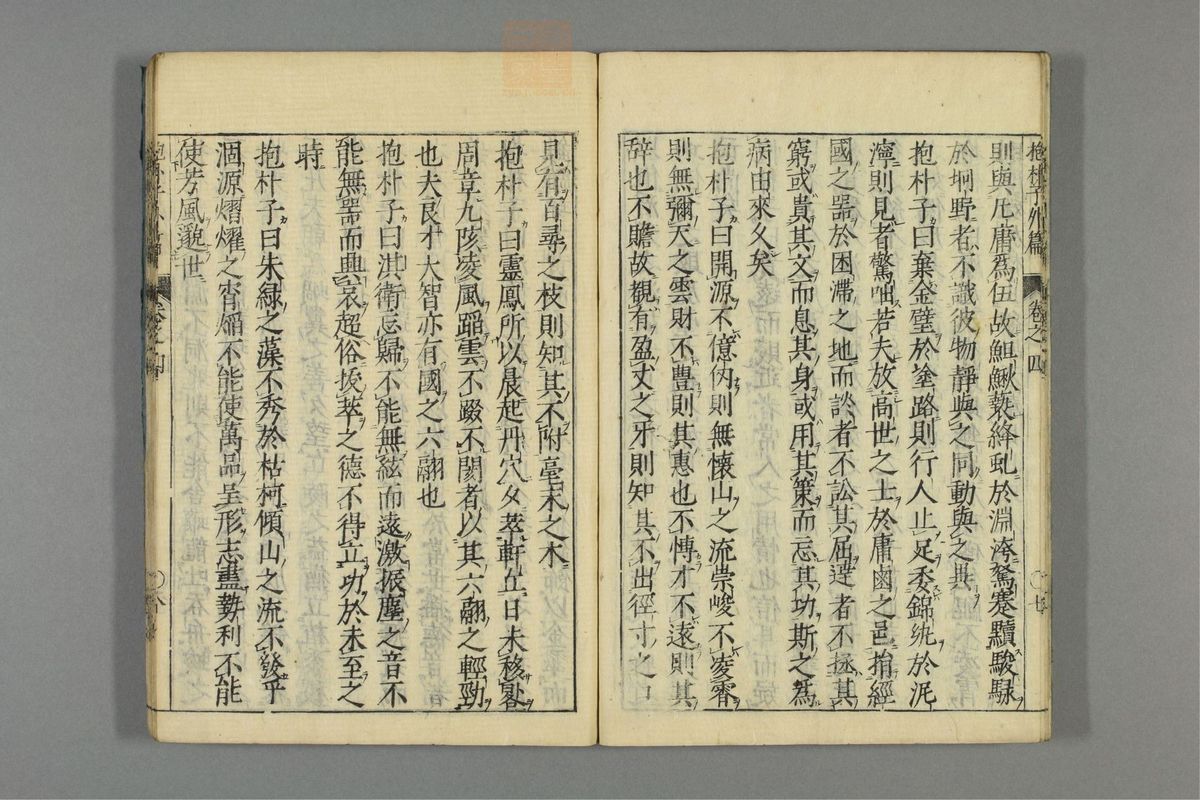 抱朴子外篇 卷之四 〇七
則與凡庸爲伍故鮋鰍䙝絳虬於淵洿駑蹇黷駿騄
於坰野者不識彼物靜與之同動與之異
抱朴子曰棄金璧於塗路則行人止足委錦紈於泥
濘則見者驚咄若夫放高世之士於庸鹵之邑捐經
國之器於困滯之地而談者不訟其屈達者不拯其
窮或貴其文而息其身或用其策而忘其功斯之爲
病由來久矣
抱朴子曰開源不億仞則無懷山之流崇峻不凌霄
則無彌天之雲財不豊則其惠也不愽才不遠則其
辞也不贍故観有盈丈之牙則知其不出徑寸之口
見有百尋之枝則知其不附毫末之木
抱朴子曰靈鳳所以晨起丹穴夕萃軒丘日未移晷
周章九陔凌風蹈雲不踬不閡者以其六翮之輕勁
也夫良才大智亦有國之六翮也
抱朴子曰淇衛忘歸不能無弦而遠激振塵之音不
能無器而興哀超俗抜萃之德不得立功於未至之
時
抱朴子曰朱緑之藻不秀於枯柯傾山之流不發乎
涸源熠燿之宵爓不能使萬品呈形志盡勢利不能
使芳風邈世
卷之四 〇八